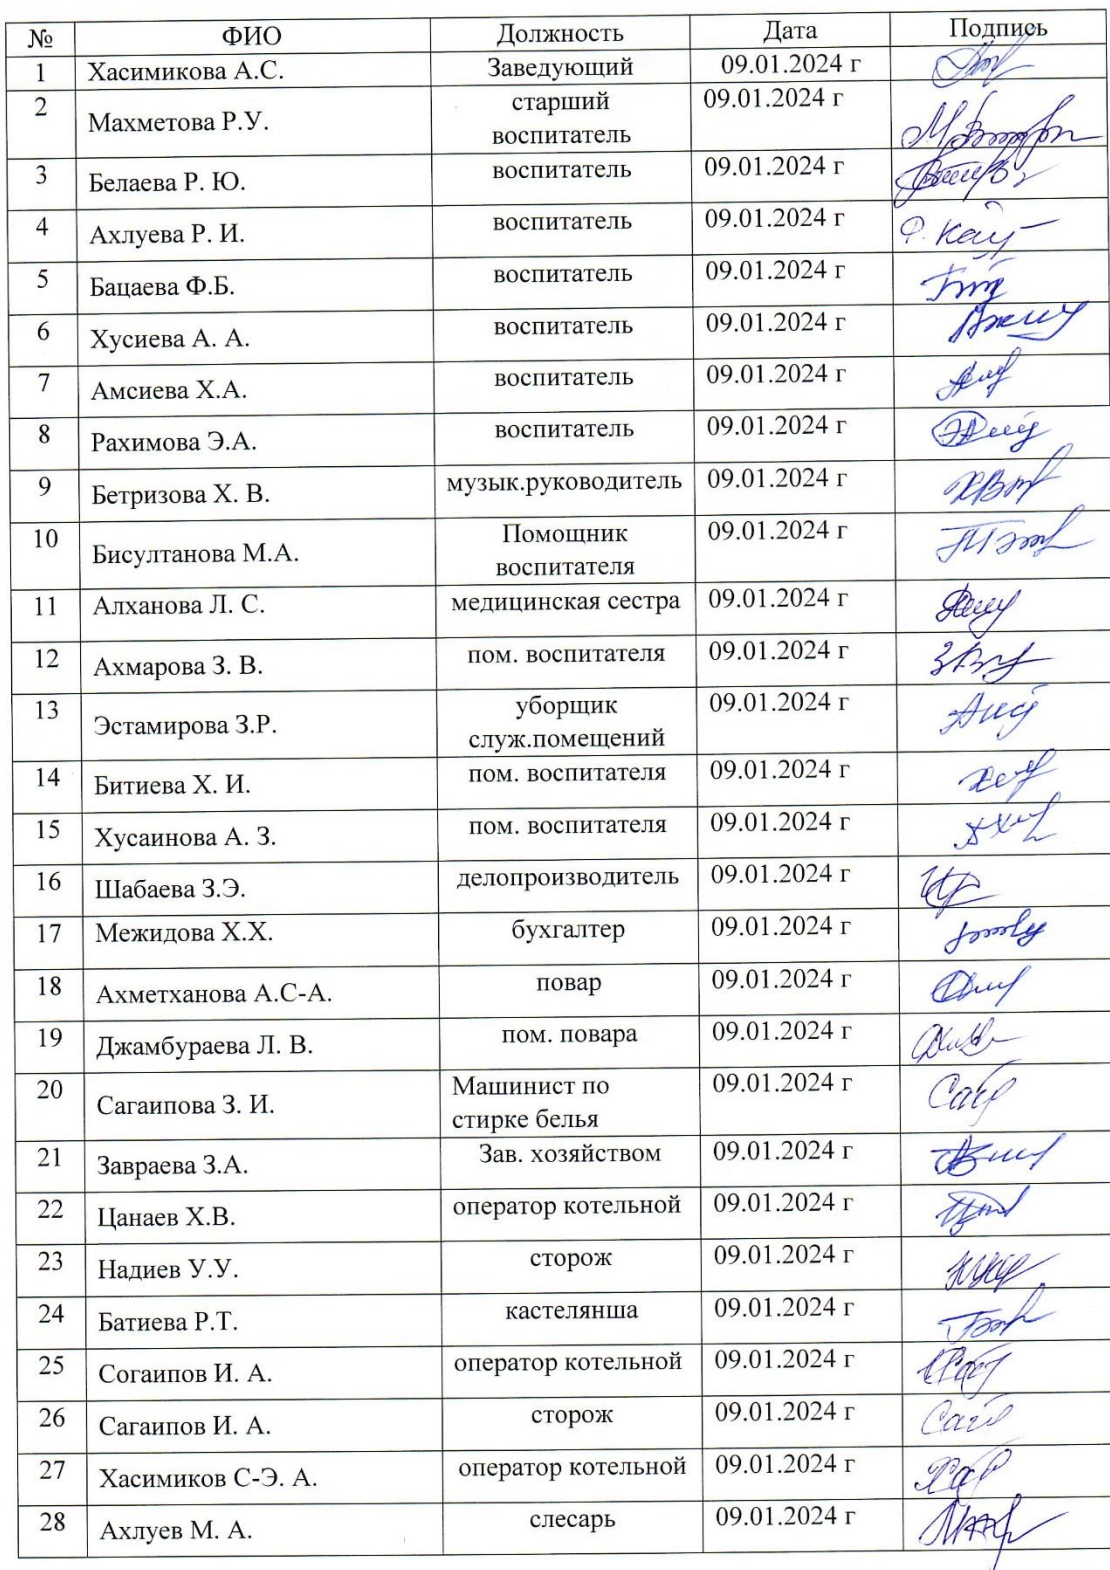 № ФИО Должность Дата Подпись
1 Хасимикова А.С. Заведующий 09.01.2024 г
2 Махметова Р.У. старший 09.01.2024 г
воспитатель
3 Белаева Р. Ю. воспитатель 09.01.2024 г
4 Ахлуева Р. И. воспитатель 09.01.2024 г
5 Бацаева Ф.Б. воспитатель 09.01.2024 г
6 Хусиева А. А. воспитатель 09.01.2024 г
7 Амсиева Х.А. воспитатель 09.01.2024 г
8 Рахимова Э.А. воспитатель 09.01.2024 г
9 Бетризова Х. В. музык.руководитель 09.01.2024 г
10 Бисултанова М.А. Помощник 09.01.2024 г
воспитателя
11 Алханова Л. С. медицинская сестра 09.01.2024 г
12 Ахмарова З. В. пом. воспитателя 09.01.2024 г
13 Эстамирова З.Р. уборщик 09.01.2024 г
служ.помещений
14 Битиева Х. И. пом. воспитателя 09.01.2024 г
15 Хусаинова А. З. пом. воспитателя 09.01.2024 г
16 Шабаева З.Э. делопроизводитель 09.01.2024 г
17 Межидова Х.Х. бухгалтер 09.01.2024 г
18 Ахметханова А.С-А. повар 09.01.2024 г
19 Джамбураева Л. В. пом. повара 09.01.2024 г
20 Сагаипова З. И. Машинист по 09.01.2024 г
стирке белья
21 Завраева З.А. Зав. хозяйством 09.01.2024 г
22 Цанаев Х.В. оператор котельной 09.01.2024 г
23 Надиев У.У. сторож 09.01.2024 г
24 Батиева Р.Т. кастелянша 09.01.2024 г
25 Согаипов И. А. оператор котельной 09.01.2024 г
26 Сагаипов И. А. сторож 09.01.2024 г
27 Хасимиков С-Э. А. оператор котельной 09.01.2024 г
28 Ахлуев М. А. слесарь 09.01.2024 г